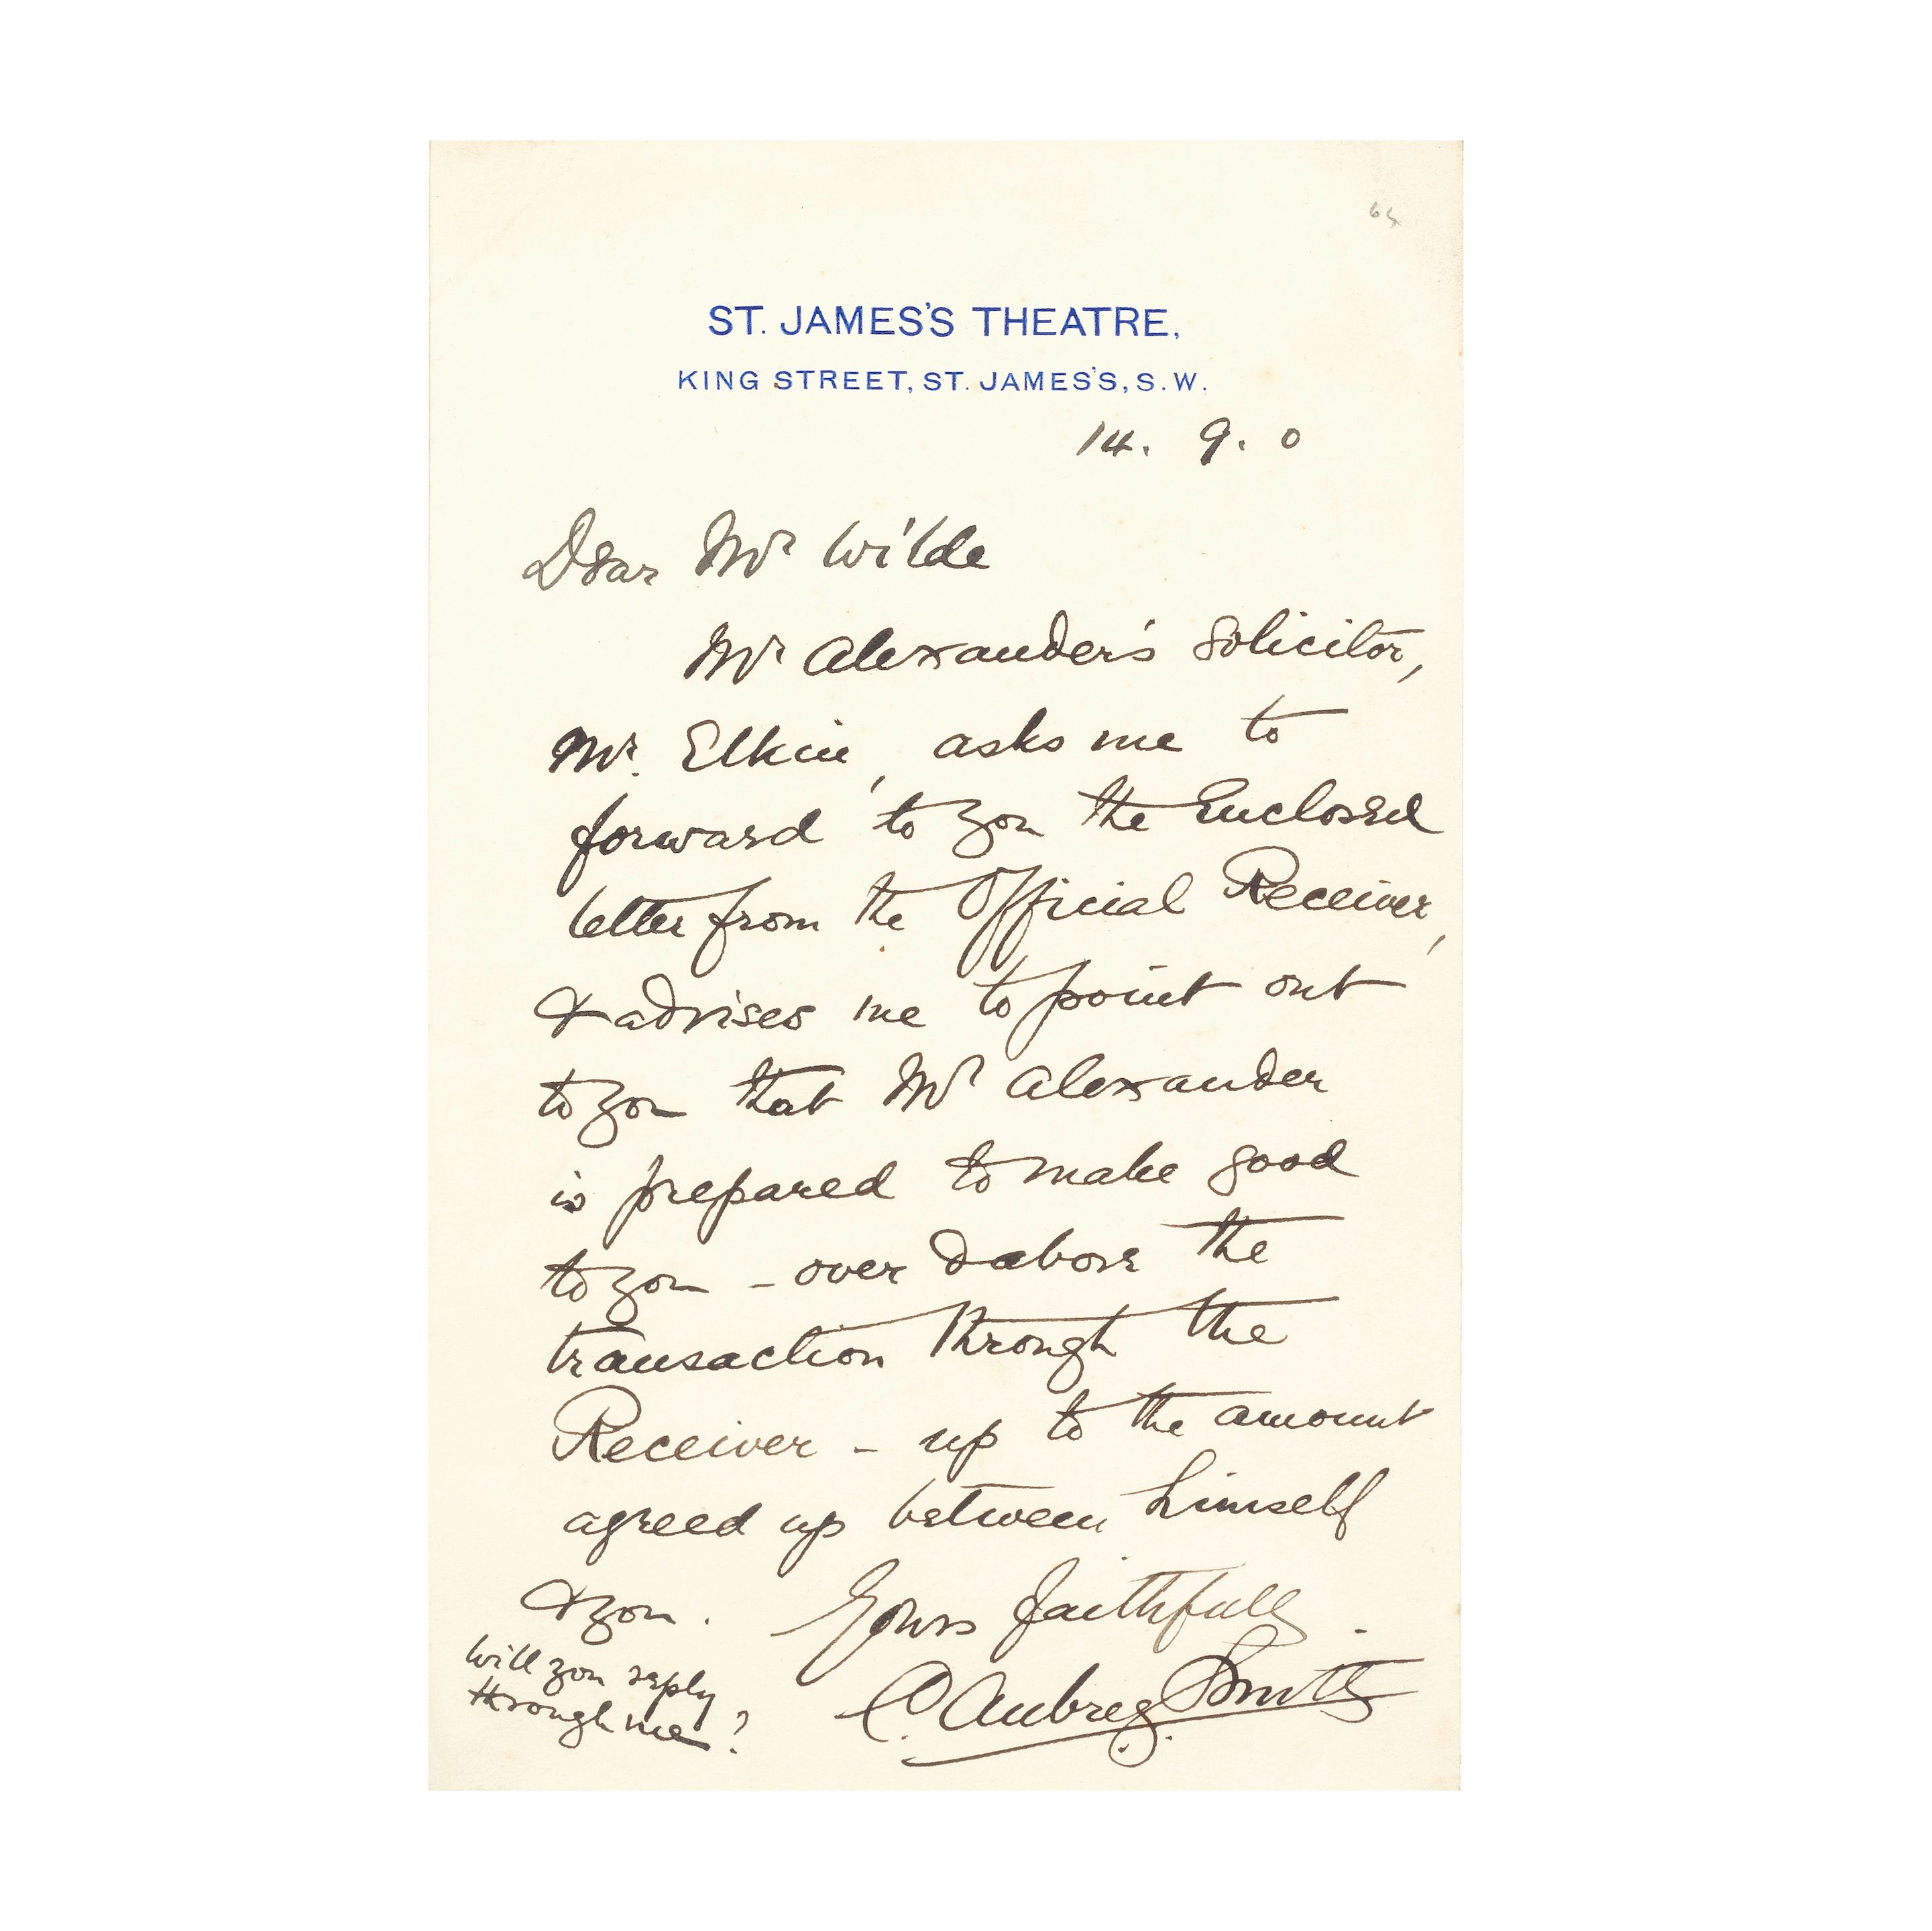 64
ST. JAMES'S THEATRE,
KING STREET, ST. JAMES'S, S.W.
14. 9. 0
Dear Mr Wilde
Mr Alexander's solicitor,
Mr. Elkin, asks me to
forward to you the enclosed
letter from the Official Receiver,
& advises me to point out
to you that Mr Alexander
is prepared to make good
to you – over & above the
transaction through the
Receiver – up to the amount
agreed up between himself
& you.
Yours faithfully.
C. Aubrey Smith
Will you reply
through me?